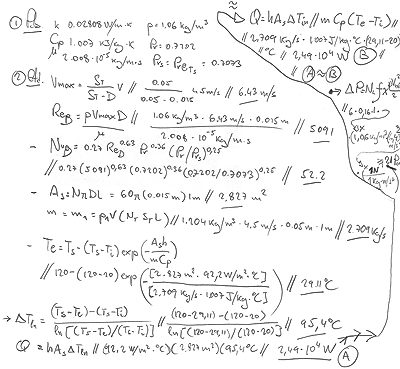 ① k 0.02808 W/m·K ρ=1.06 kg/m³
Cp 1.007 KJ/kg·K Pr=0.7202
μ 2.008·10⁻⁵ kg/m·s Prs=Pr@Ts=0.7073
② Vmax= ST/(ST-D) V // 0.05/(0.05-0.015) 4.5 m/s // 6,43 m/s
ReD= ρVmaxD/μ // 1.06 kg/m³·6.43 m/s·0.015 m/2.008·10⁻⁵ kg/m·s // 5091
- NuD= 0.27 ReD^0.63 Pr^0.36 (Pr/Prs)^0.25
// 0.27 (5091)^0,63 (0.7202)^0.36 (0.7202/0.7073)^0,25 // 52.2
- As=NπDL= 60π(0.015m)1m // 2,827 m²
ṁ=ṁ₁=ρ₁V(NT ST L) // 1.204 kg/m³·4.5 m/s·0.05m·1m // 2.709 kg/s
- Te=Ts-(Ts-Ti)exp(-Ash/ṁCp)
// 120-(120-20)exp(-[2.827 m²·92,2 W/m²·°C]/[2.709 kg/s·1007 J/kg·°C]) // 29.11°C
→ ΔTln= (Ts-Te)-(Ts-Ti)/ln[(Ts-Te)/(Ts-Ti)] // (120-29,11)-(120-20)/ln[(120-29,11)/(120-20)] // 95,4°C
Q̇= hAsΔTln // (92,2 W/m²·°C)(2.827 m²)(95,4°C) // 2,49·10⁴ W
Ⓐ
≈
Q̇=hAsΔTln // ṁCp(Te-Ti) //
// 2,709 kg/s·1007 J/kg·°C·(29,11-20)
°C // 2,49·10⁴ W Ⓑ
Ⓐ≈Ⓑ